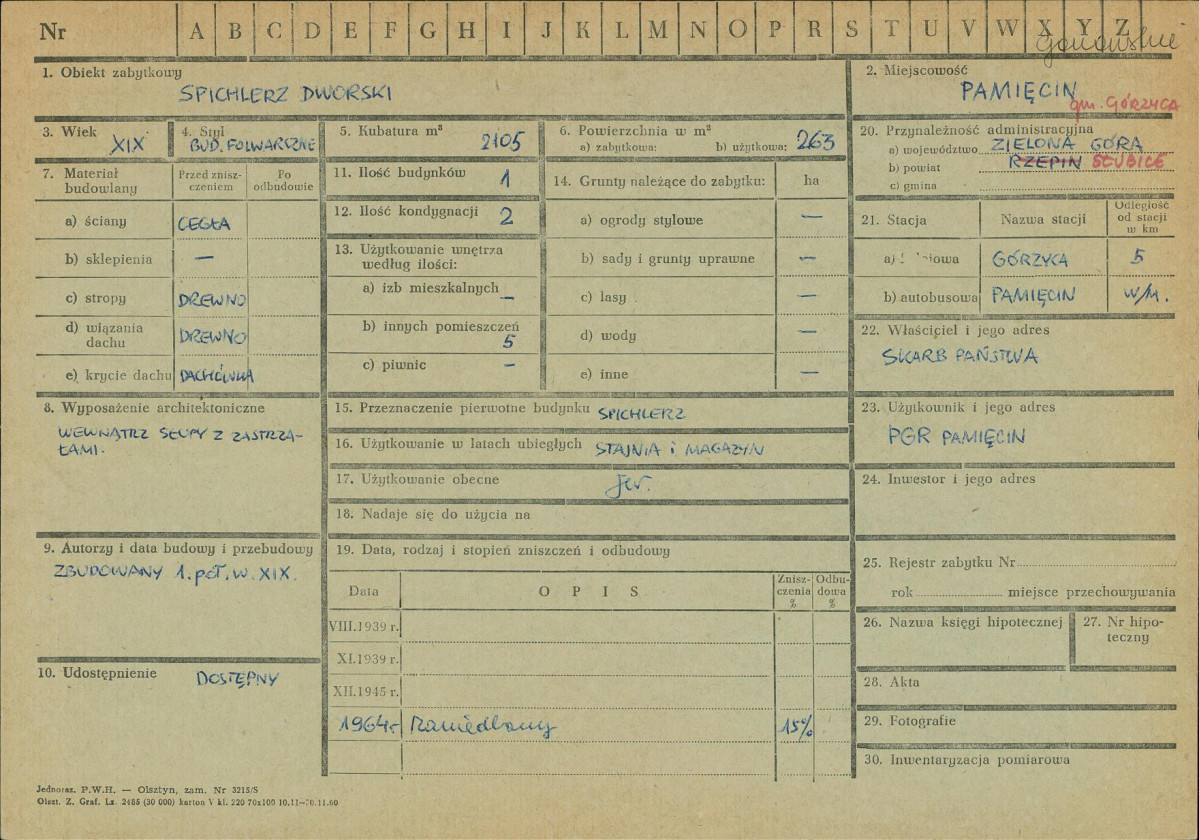 Nr A B C D E F G H I J K L M N O P R S T U V W X Y Z
gorzowskie
1. Obiekt zabytkowy
SPICHLERZ DWORSKI
2. Miejscowość
PAMIĘCIN
gm. GÓRZYCA
3. Wiek
XIX
4. Styl
BUD. FOLWARCZNE
5. Kubatura m³
2105
6. Powierzchnia w m²
a) zabytkowa: b) użytkowa: 263
20. Przynależność administracyjna
a) województwo ZIELONA GÓRA
b) powiat RZEPIN SŁUBICE
c) gmina
7. Materiał budowlany
Przed zniszczeniem
Po odbudowie
a) ściany CEGŁA
b) sklepienia —
c) stropy DREWNO
d) wiązania dachu DREWNO
e) krycie dachu DACHÓWKA
11. Ilość budynków 1
12. Ilość kondygnacji 2
13. Użytkowanie wnętrza według ilości:
a) izb mieszkalnych —
b) innych pomieszczeń 5
c) piwnic —
14. Grunty należące do zabytku: ha
a) ogrody stylowe —
b) sady i grunty uprawne —
c) lasy —
d) wody —
e) inne —
21. Stacja Nazwa stacji Odległość od stacji w km
a) GÓRZYCA 5
b) autobusowa PAMIĘCIN W/M.
22. Właściciel i jego adres
SKARB PAŃSTWA
8. Wyposażenie architektoniczne
WEWNĄTRZ SŁUPY Z ZASTRZA-
ŁAMI.
15. Przeznaczenie pierwotne budynku SPICHLERZ
16. Użytkowanie w latach ubiegłych STAJNIA i MAGAZYN
17. Użytkowanie obecne jw.
18. Nadaje się do użycia na
23. Użytkownik i jego adres
PGR PAMIĘCIN
24. Inwestor i jego adres
9. Autorzy i data budowy i przebudowy
ZBUDOWANY 1. poł. w. XIX.
19. Data, rodzaj i stopień zniszczeń i odbudowy
Data OPIS Zniszczenia % Odbudowa %
VIII.1939 r.
XI.1939 r.
XII.1945 r.
1964 r Zaniedbany 15%
25. Rejestr zabytku Nr
rok miejsce przechowywania
26. Nazwa księgi hipotecznej
27. Nr hipo-
teczny
10. Udostępnienie DOSTĘPNY
28. Akta
29. Fotografie
30. Inwentaryzacja pomiarowa
Jednoraz. P.W.H. — Olsztyn, zam. Nr 3215/S
Olszt. Z. Graf. Lz. 2485 (30 000) karton V kl. 220 70x100 10.11—30.11.60